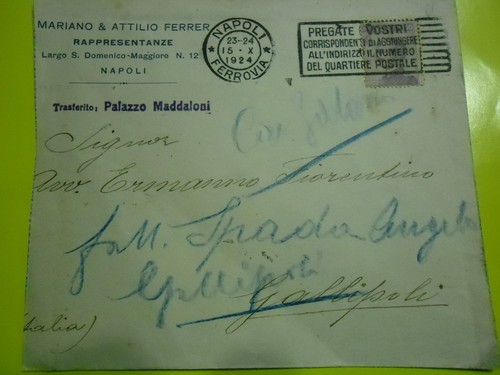 MARIANO & ATTILIO FERRER
RAPPRESENTANZE
Largo S. Domenico-Maggiore N. 12
NAPOLI
Trasferito: Palazzo Maddaloni
NAPOLI
23-24
15 · X
1924
FERROVIA
PREGATE I VOSTRI
CORRISPONDENTI DI AGGIUNGERE
ALL'INDIRIZZO IL NUMERO
DEL QUARTIERE POSTALE
Signor
Avv. Ermanno Fiorentino
fall. Spada Angelo
Gallipoli
Gallipoli